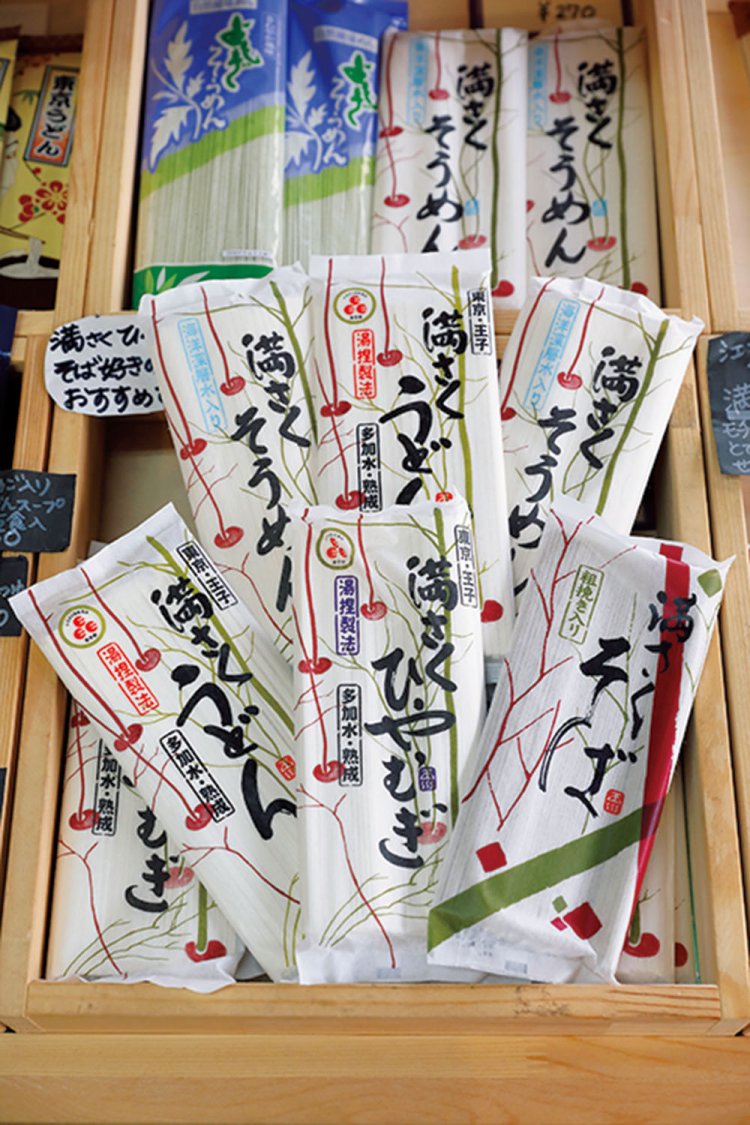 ¥270
東京うどん
そうめん
満さく
そうめん
海洋深層水入り
満さく
そうめん
満さくひ
そば好きの
おすすめ
海洋深層水入り
満さく
そうめん
東京・王子
湯捏製法
満さく
うどん
多加水・熟成
海洋深層水入り
満さく
そうめん
入り
スープ
東京・王子
湯捏製法
満さく
うどん
多加水・熟成
東京・王子
湯捏製法
満さく
ひやむぎ
多加水・熟成
粗挽き入り
満さく
そば
多加水・熟成
むぎ